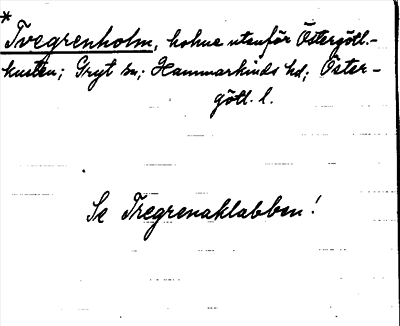 *
Tvegrenholm, holme utanför Östergötl.-
kusten; Gryt sn; Hammarkinds hd; Öster-
götl. l.
Se Tregrenaklabben!